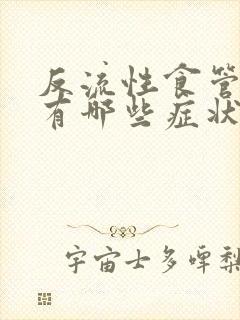 反流性食管
有哪些症状
宇宙士多啤梨